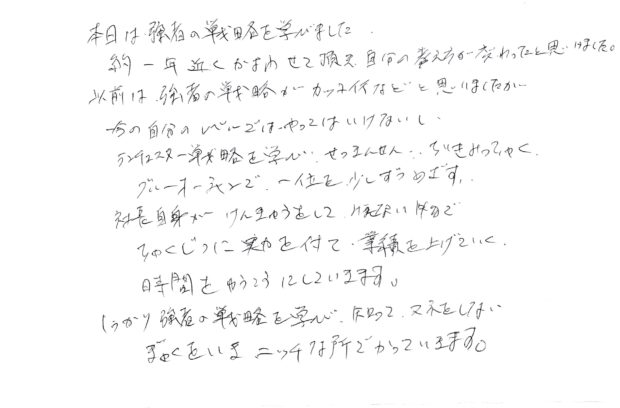 本日は強者の戦略を学びました。
約一年近くかよわせて頂き、自分の考え方が変わったと思いました。
以前は、強者の戦略がカッコ何などと思いましたが
今の自分のレベルではやってはいけないし、
ランチェスター戦略を学び、せつまんせん、ちいきみっちゃく、
ブルーオーシャンで、一位を少しずつめざす。
社長自身がけんきゅうをして、
ちゃくじつに実力を付て、業績を上げていく、
時間をゆうこうにしていきます。
しっかり強者の戦略を学び、知って、マネをしない
ぎゃくをいきニッチな所でかっていきます。